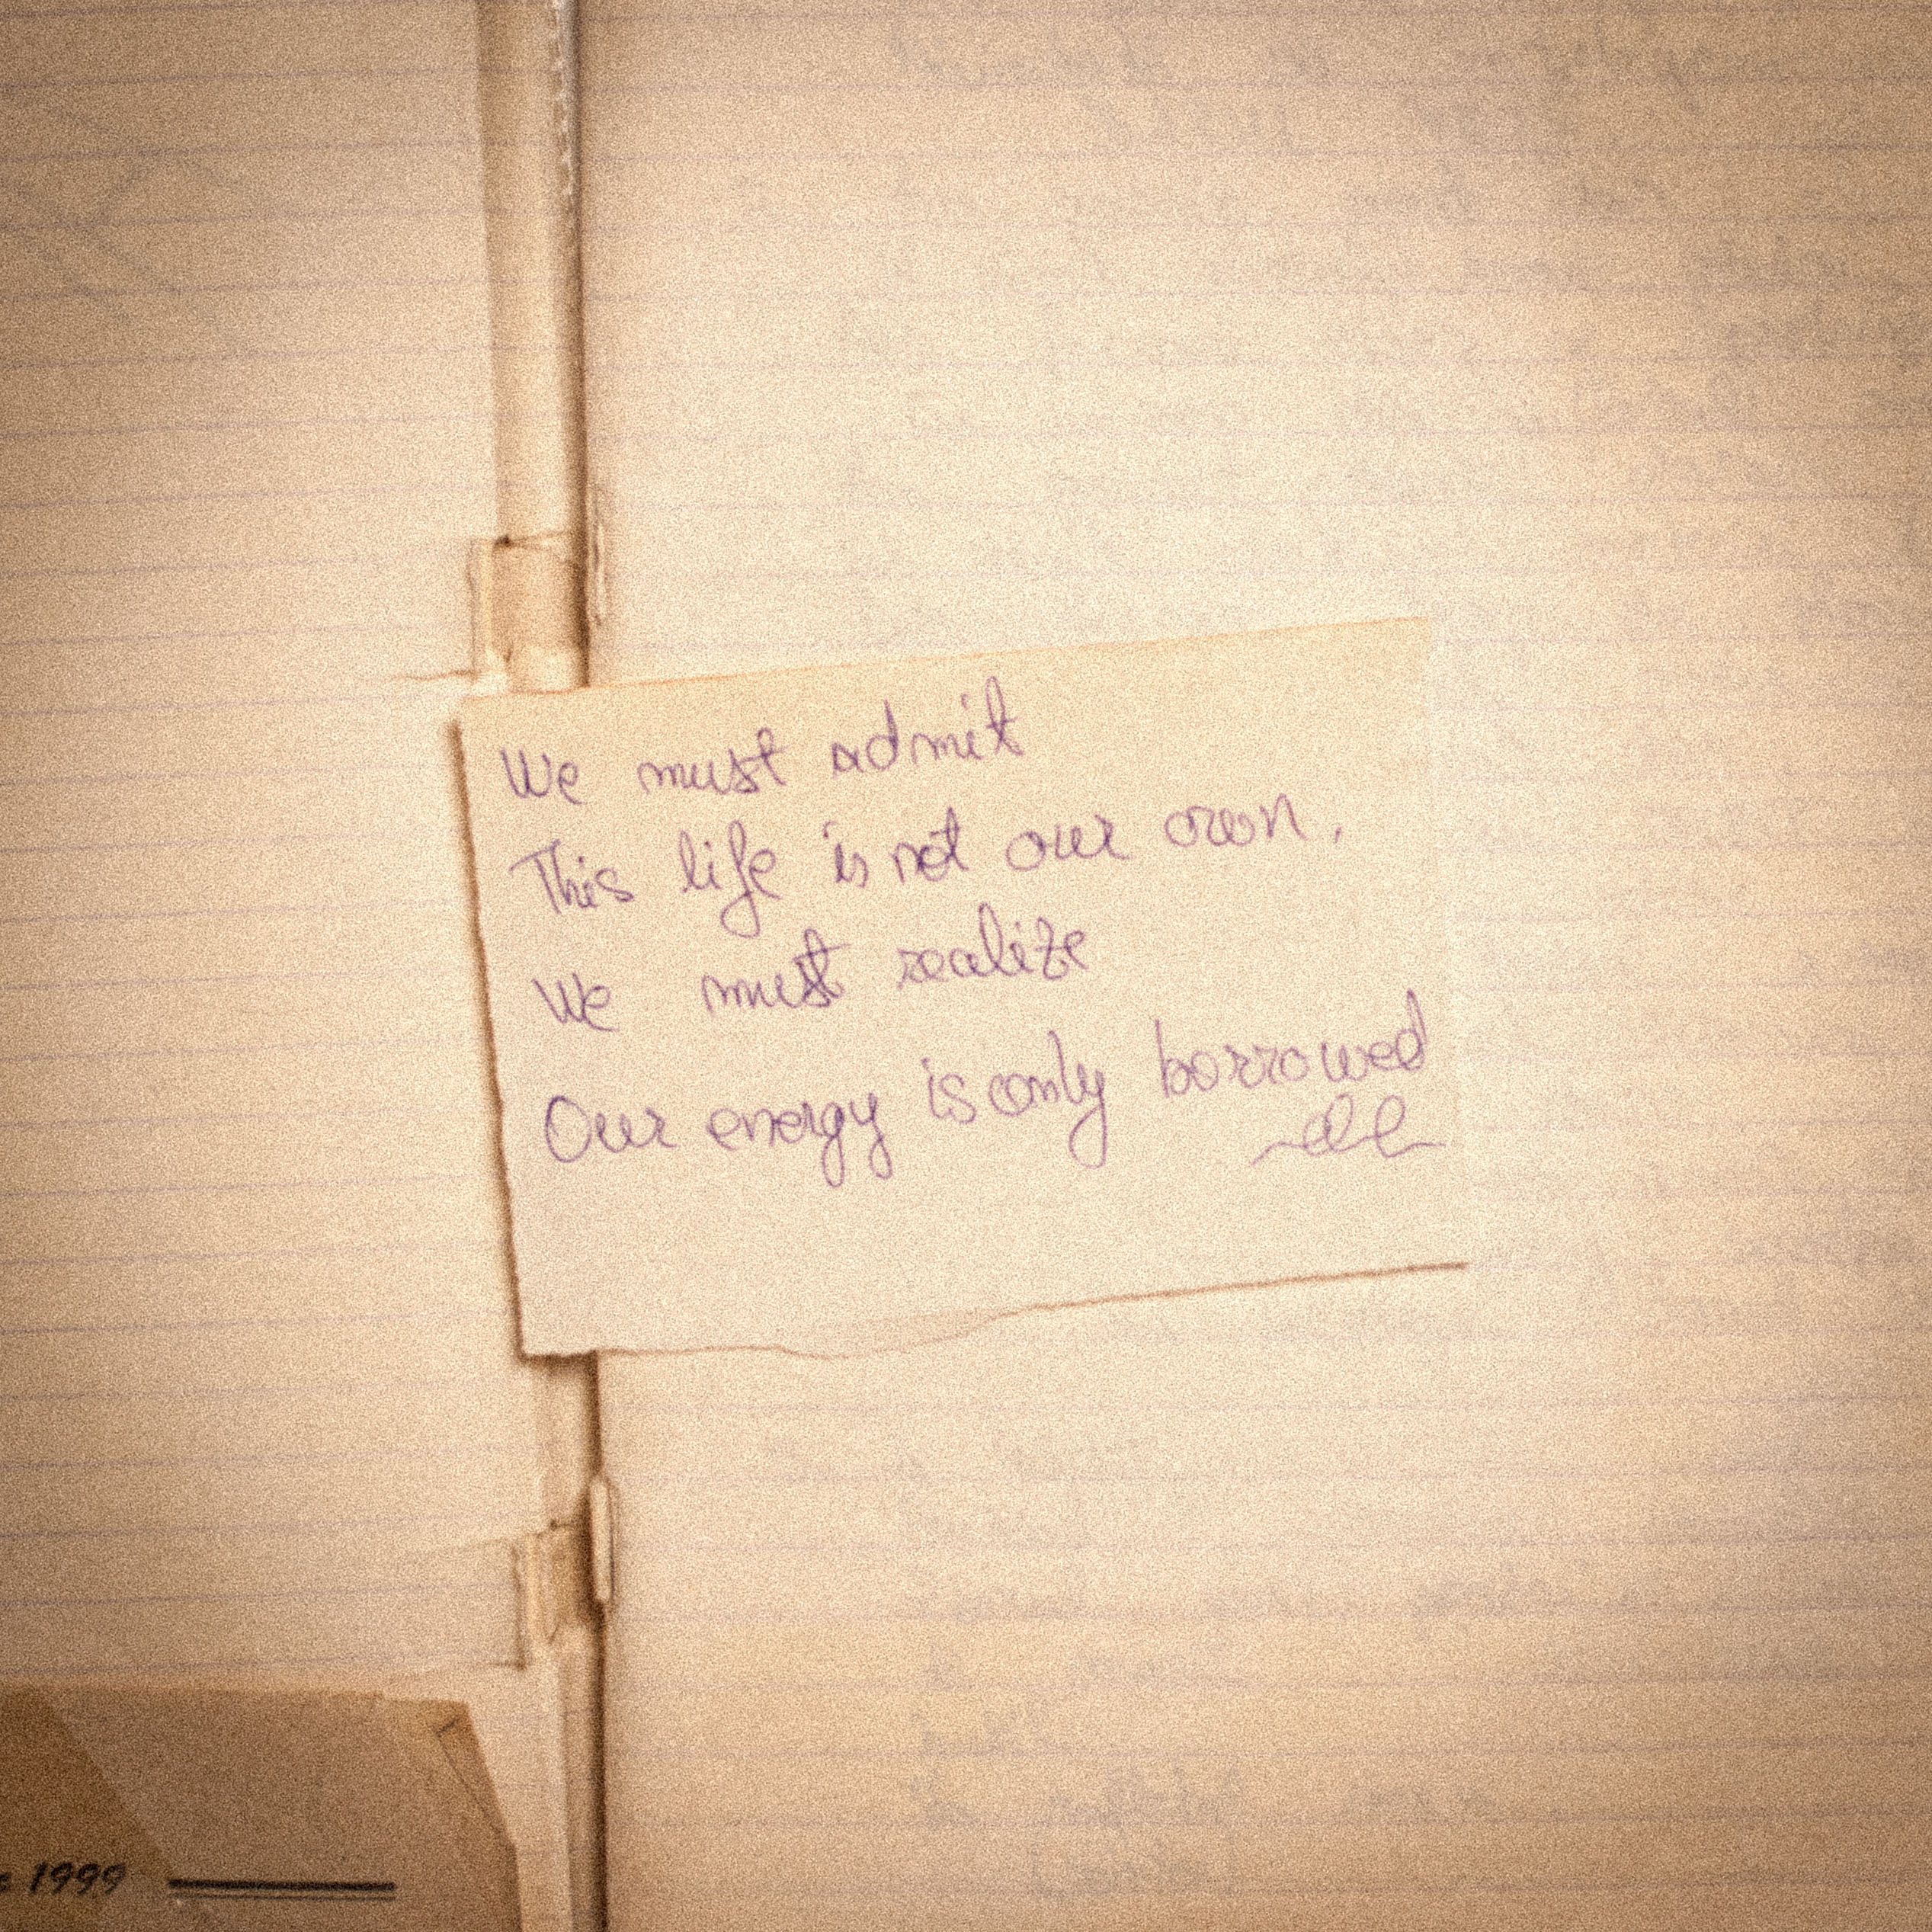 We must admit
This life is not our own,
We must realize
Our energy is only borrowed
1999